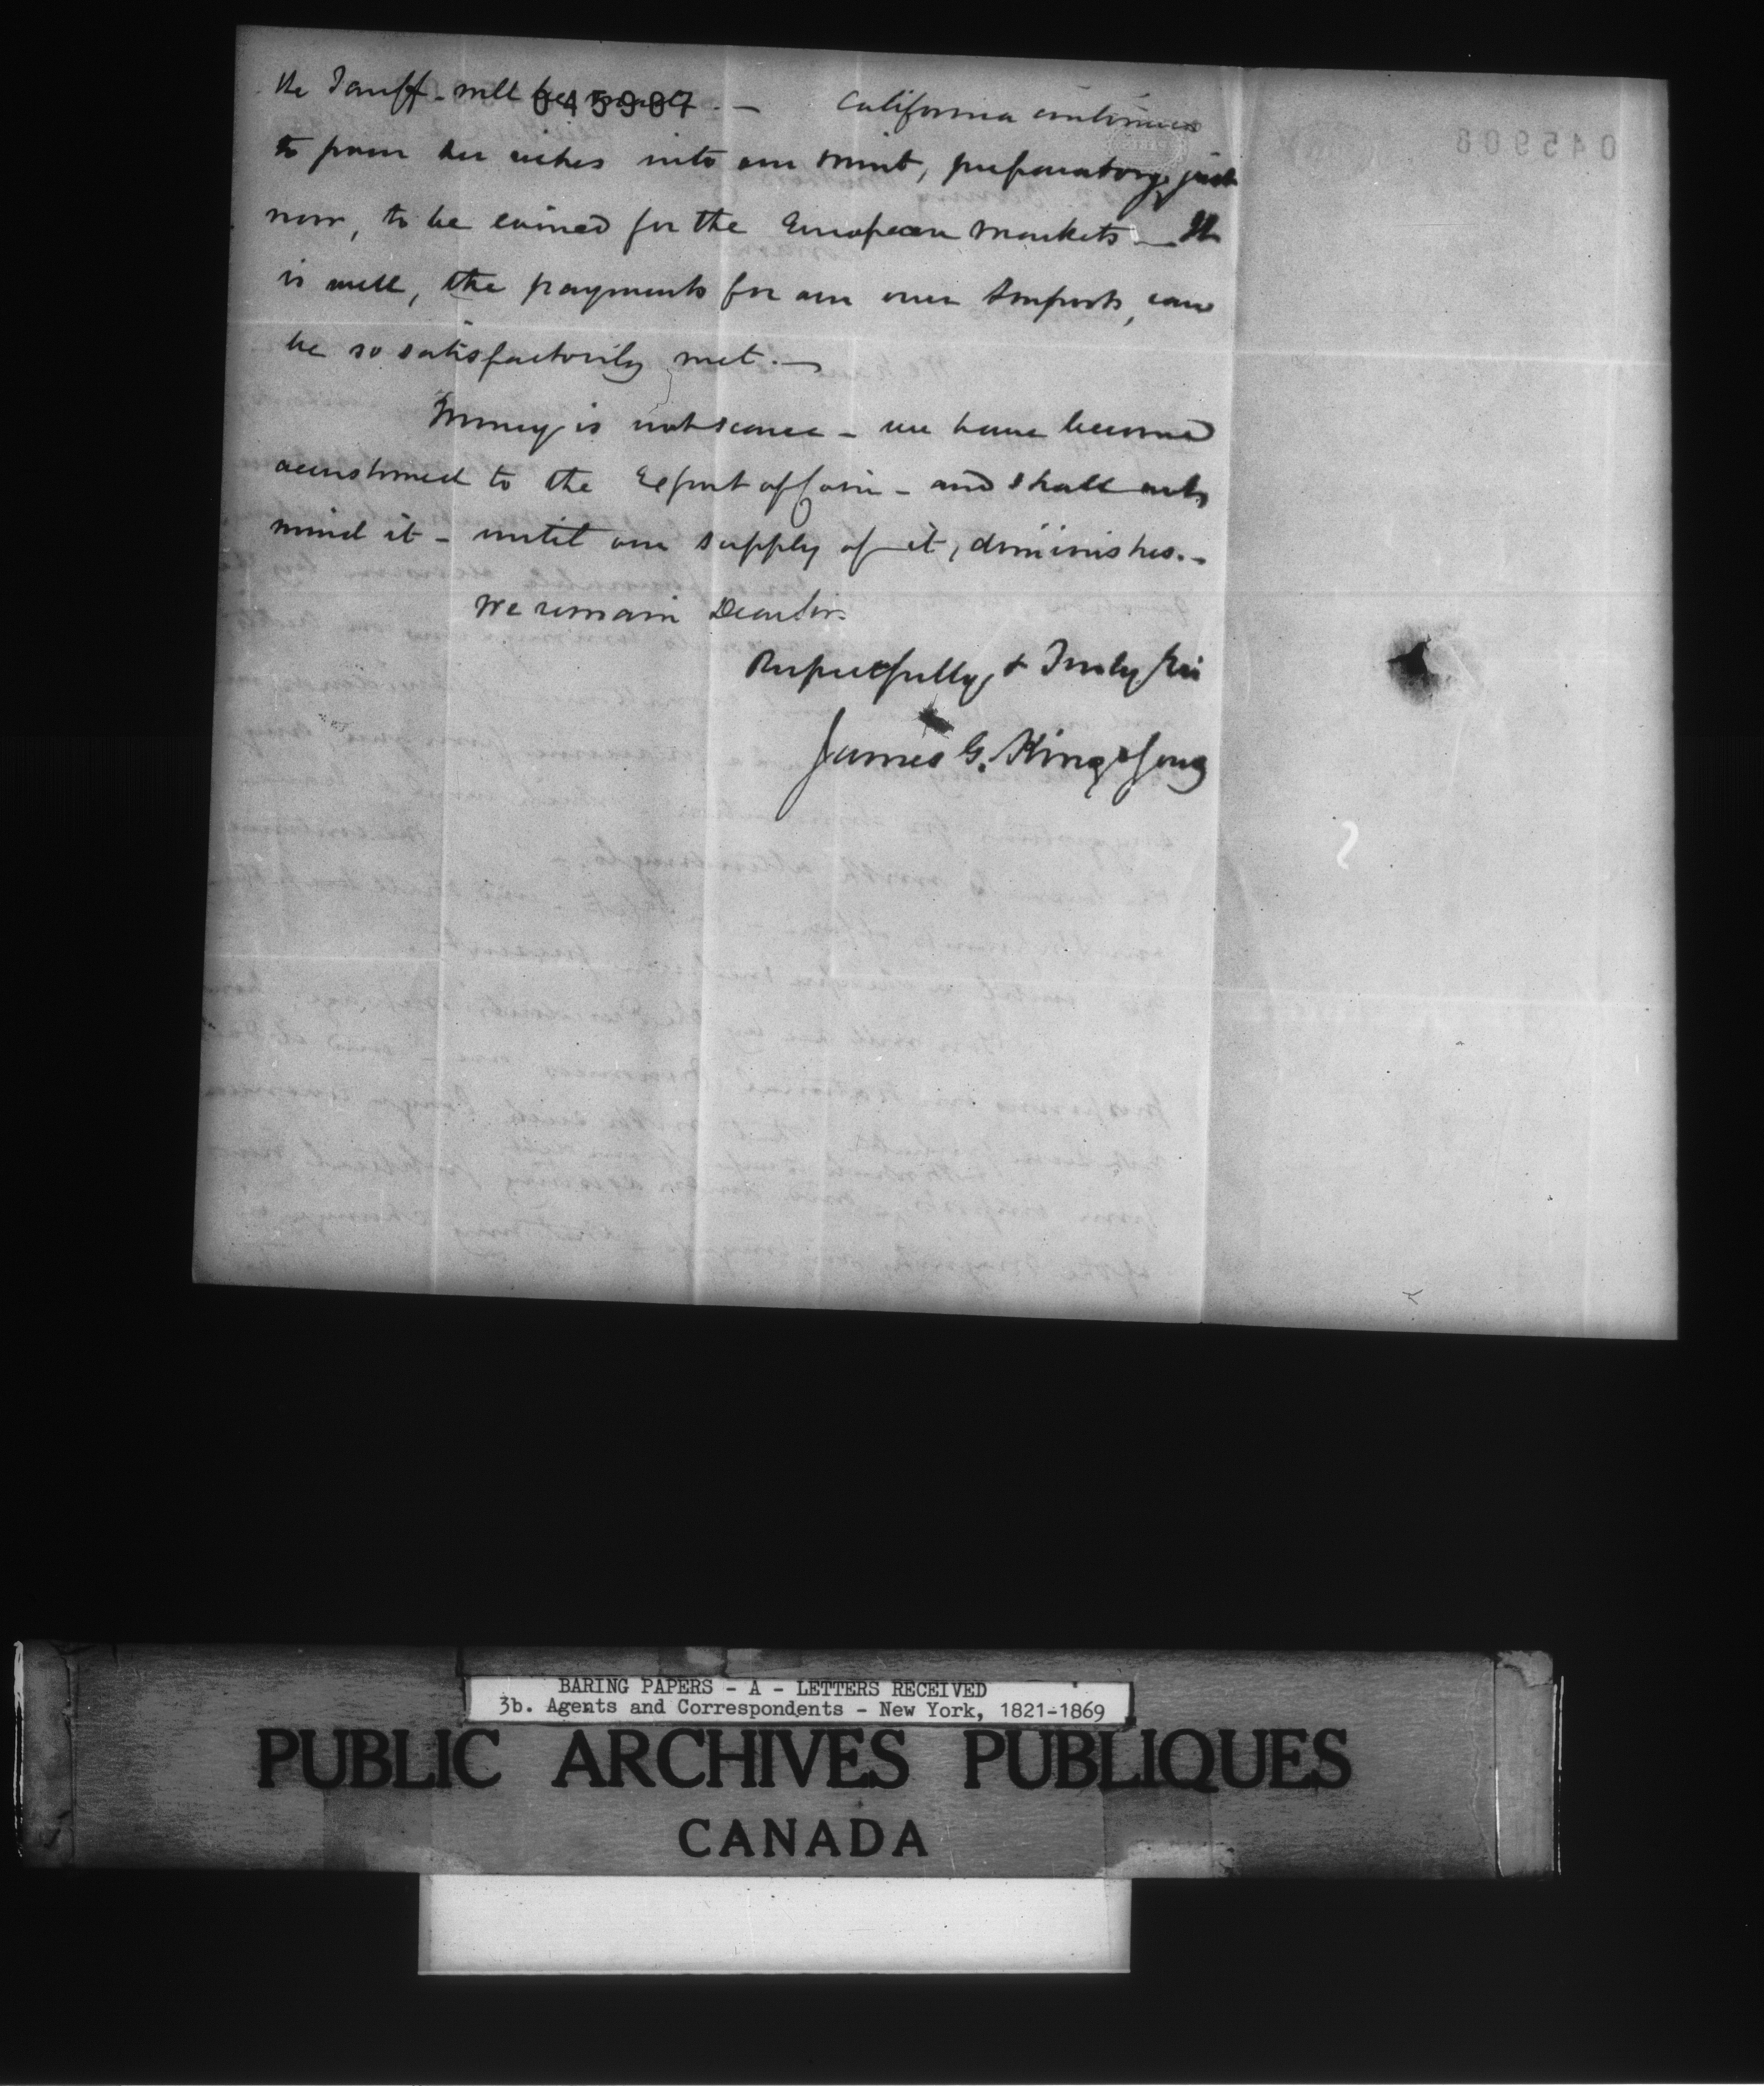 the Tariff - will be made. — California continues
045907
045908
to pour her riches into our Mint, preparatory, just
now, to be coined for the European Markets — It
is well, the payments for our over Imports, can
be so satisfactorily met. —
Money is not scarce - we have become
accustomed to the Export of Coin - and shall not
mind it - until our supply of it, diminishes. -
We remain Dear Sir
Respectfully & Truly Yrs
James G. King & Sons
BARING PAPERS - A - LETTERS RECEIVED
3b. Agents and Correspondents - New York, 1821-1869
PUBLIC ARCHIVES PUBLIQUES
CANADA